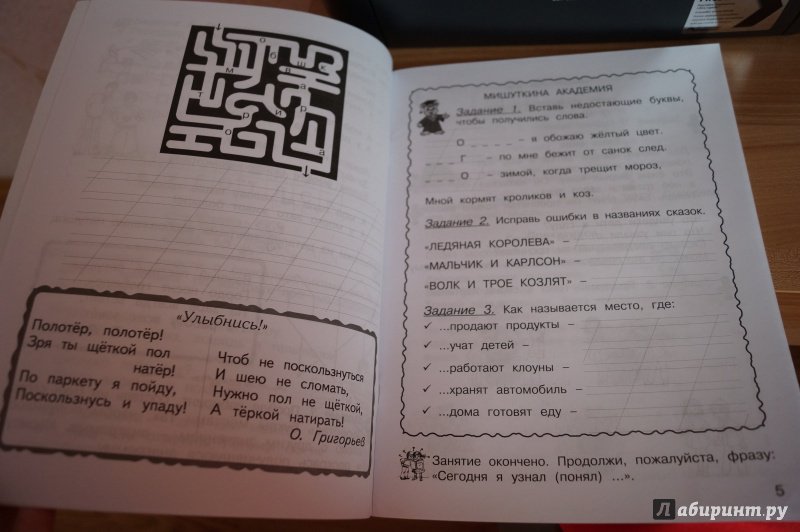 о
б
ш
к
м
в
а
т
р
и
р
о
а
«Улыбнись!»
Полотёр, полотёр!
Зря ты щёткой пол
натёр!
По паркету я пойду,
Поскользнусь и упаду!
Чтоб не поскользнуться
И шею не сломать,
Нужно пол не щёткой,
А тёркой натирать!
О. Григорьев
МИШУТКИНА АКАДЕМИЯ
Задание 1. Вставь недостающие буквы,
чтобы получились слова.
О _ _ _ _ _ – я обожаю жёлтый цвет.
_ _ _ Г – по мне бежит от санок след.
_ _ _ О – зимой, когда трещит мороз,
Мной кормят кроликов и коз.
Задание 2. Исправь ошибки в названиях сказок.
«ЛЕДЯНАЯ КОРОЛЕВА» –
«МАЛЬЧИК И КАРЛСОН» –
«ВОЛК И ТРОЕ КОЗЛЯТ» –
Задание 3. Как называется место, где:
✓ ...продают продукты –
✓ ...учат детей –
✓ ...работают клоуны –
✓ ...хранят автомобиль –
✓ ...дома готовят еду –
Занятие окончено. Продолжи, пожалуйста, фразу:
«Сегодня я узнал (понял) ...».
5
Лабиринт.ру